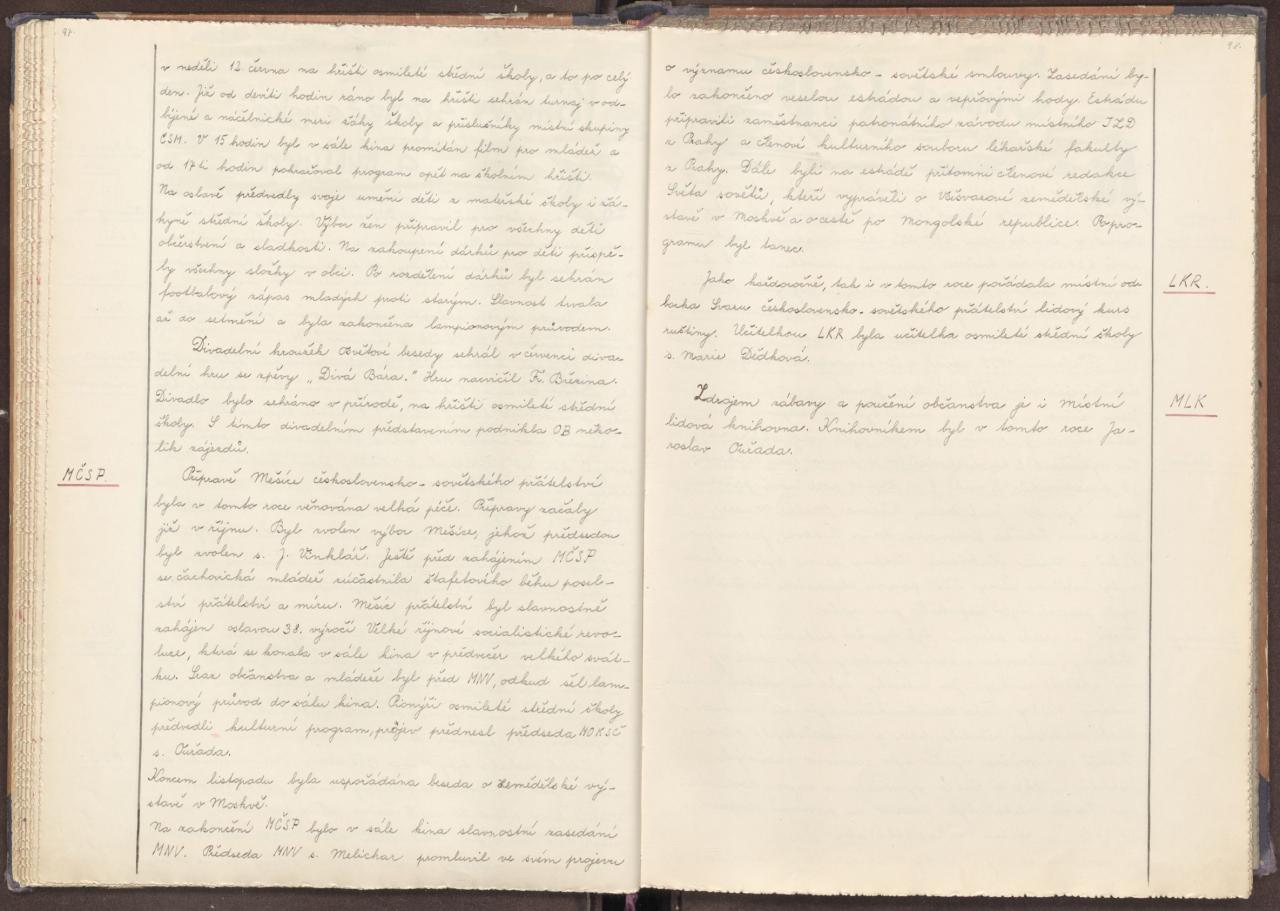 97.
v neděli 12. června na hřišti osmileté střední školy, a to po celý
den. Již od devíti hodin ráno byl na hřišti sehrán turnaj v od-
bíjené a náčelnické mezi žáky školy a příslušníky místní skupiny
ČSM. V 15 hodin byl v sále kina promítán film pro mládež a
od 17ti hodin pokračoval program opět na školním hřišti.
Na oslavě předvedly svoje umění děti z mateřské školy i žá-
kyně střední školy. Výbor žen připravil pro všechny děti
občerstvení a sladkosti. Na zakoupení dárků pro děti přispě-
ly všechny složky v obci. Po rozdělení dárků byl sehrán
footbalový zápas mladých proti starým. Slavnost trvala
až do setmění a byla zakončena lampionovým průvodem.
Divadelní kroužek Osvětové besedy sehrál v červenci diva-
delní hru se zpěvy „Divá Bára." Hru nacvičil Fr. Březina.
Divadlo bylo sehráno v přírodě, na hřišti osmileté střední
školy. S tímto divadelním představením podnikla OB něko-
lik zájezdů.
MČSP.
Přípravě Měsíce československo-sovětského přátelství
byla v tomto roce věnována velká péče. Přípravy začaly
již v říjnu. Byl zvolen výbor Měsíce, jehož předsedou
byl zvolen s. J. Vinklář. Ještě před zahájením MČSP
se čachovická mládež zúčastnila štafetového běhu posel-
ství přátelství a míru. Měsíc přátelství byl slavnostně
zahájen oslavou 38. výročí Velké říjnové socialistické revo-
luce, která se konala v sále kina v předvečer velkého svát-
ku. Sraz občanstva a mládeže byl před MNV, odkud šel lam-
pionový průvod do sálu kina. Pionýři osmileté střední školy
předvedli kulturní program, projev přednesl předseda MOKSČ
s. Ouřada.
Koncem listopadu byla uspořádána beseda o Zemědělské vý-
stavě v Moskvě.
Na zakončení MČSP bylo v sále kina slavnostní zasedání
MNV. Předseda MNV s. Melichar promluvil ve svém projevu
98.
o významu československo-sovětské smlouvy. Zasedání by-
lo zakončeno veselou estrádou a vepřovými hody. Estrádu
připravili zaměstnanci patronátního závodu místního JZD
z Prahy a členové kulturního souboru lékařské fakulty
z Prahy. Dále byli na estrádě přítomni členové redakce
Světa sovětů, kteří vyprávěli o Všesvazové zemědělské vý-
stavě v Moskvě a o cestě po Mongolské republice. Po pro-
gramu byl tanec.
LKR.
Jako každoročně, tak i v tomto roce pořádala místní od-
bočka Svazu československo-sovětského přátelství lidový kurs
ruštiny. Učitelkou LKR byla učitelka osmileté střední školy
s. Marie Dědková.
MLK
Zdrojem zábavy a poučení občanstva je i Místní
lidová knihovna. Knihovníkem byl v tomto roce Ja-
roslav Ouřada.